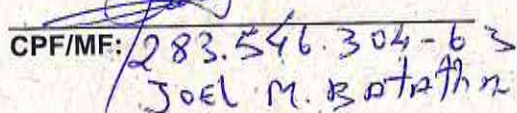 CPF/MF: 283.546.304-63
JOEL M. BATATHA